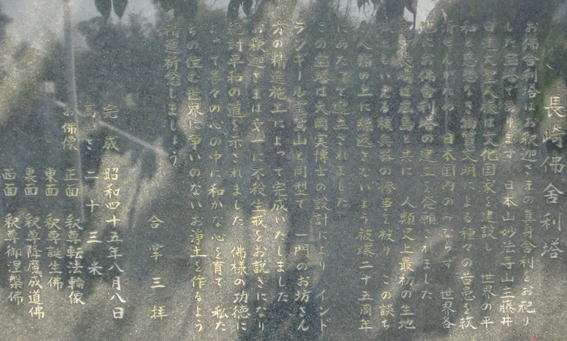 長崎佛舎利塔
お佛舎利塔はお釈迦さまの真身舎利をお祀り
した宝塔であります 日本山妙法寺山主藤井
日達大聖人様は文化国家を建設し 世界の平
和を
物質文明による種々の苦悩を救
日本国内のみならず 世界各
地にお佛舎利塔の建立を発願されました
長崎は広島と共に 人類史上最初の
被り この
人類の上に繰返さないよう被爆二十五周年
にあたって建立されました
この宝塔は大岡実博士の設計により インド
ラジギール霊鷲山と同型で 一門のお坊さん
方の精進施工によって完成いたしました
お釈迦さまは第一に不殺生戒をお説きになり
絶対平和の道を示されました 佛様の功徳に
よって各々の心の中に和かな心を育て 私た
ちの住む世界に争いのないお浄土を作るよう
精進祈念しましょう
合掌三拝
完成 昭和四十五年八月八日
高さ 二十三米
お佛像 正面 釈尊転法輪像
東面 釈尊誕生佛
裏面 釈尊降魔成道佛
西面 釈尊御涅槃佛